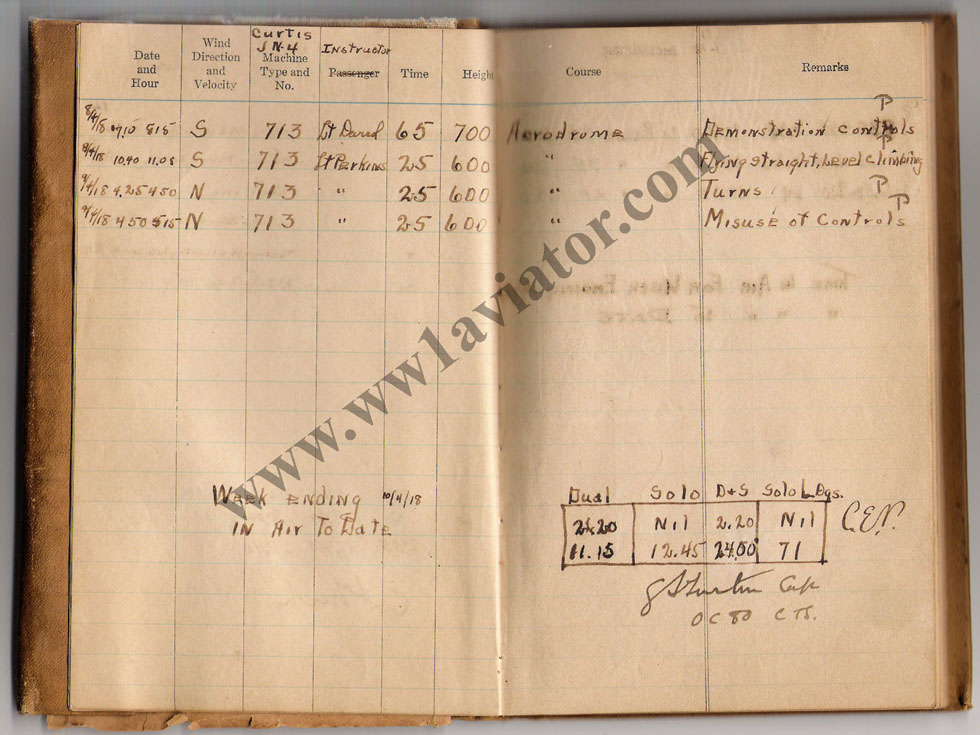 Date and Hour Wind Direction and Velocity Curtis JN4 Machine Type and No. Instructor Passenger Time Height Course Remarks
8/4/18 7.10 8.15 S 713 Lt David 65 700 Aerodrome Demonstration controls P
9/4/18 10.40 11.05 S 713 Lt Perkins 25 600 " Flying straight, Level climbing P
9/4/18 4.25 4.50 N 713 " 25 600 " Turns P
9/4/18 4.50 5.15 N 713 " 25 600 " Misuse of Controls P
Dual Solo D+S Solo Ldgs.
Week ending 10/4/18 2.20 Nil 2.20 Nil
In Air To Date 11.15 12.45 24.00 71
Cap
OC 80 CTS.
www.ww1aviator.com